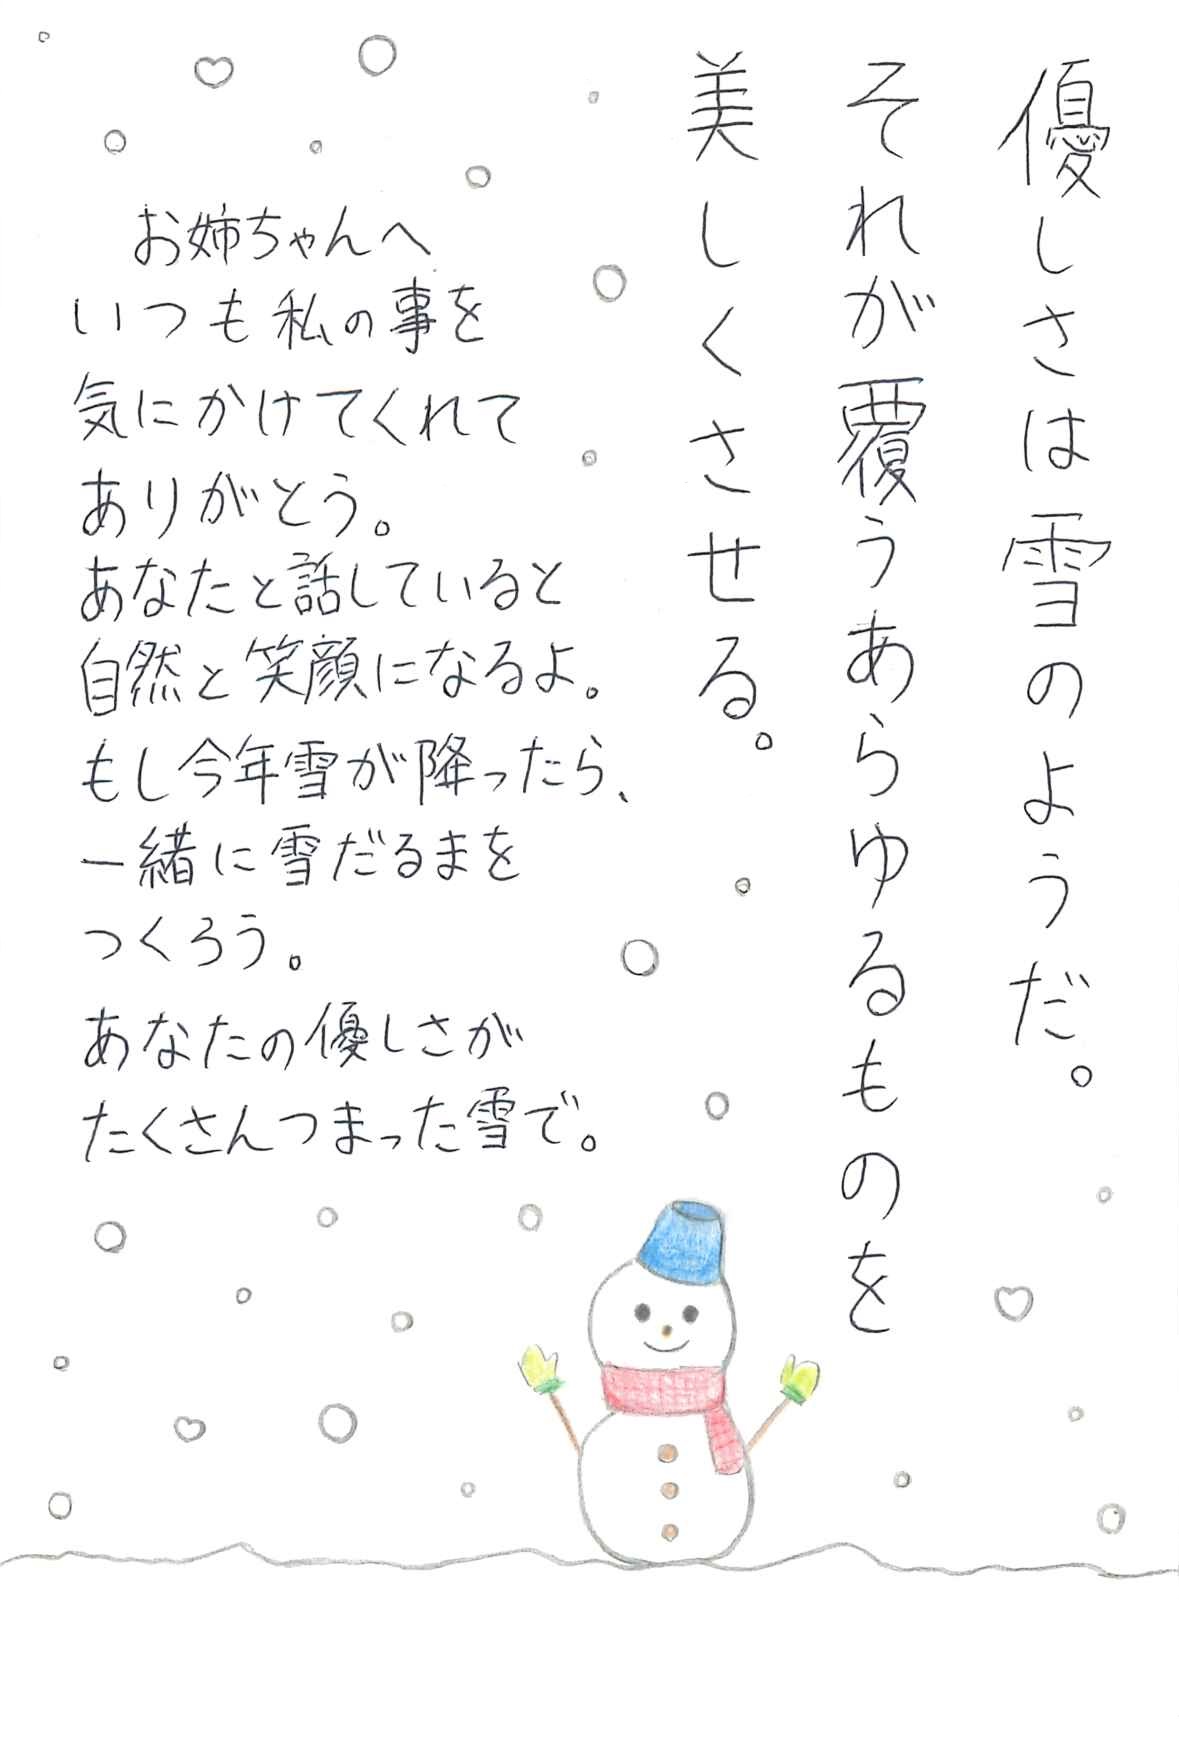 優しさは雪のようだ。
それが覆うあらゆるものを
美しくさせる。
お姉ちゃんへ
いつも私の事を
気にかけてくれて
ありがとう。
あなたと話していると
自然と笑顔になるよ。
もし今年雪が降ったら、
一緒に雪だるまを
つくろう。
あなたの優しさが
たくさんつまった雪で。